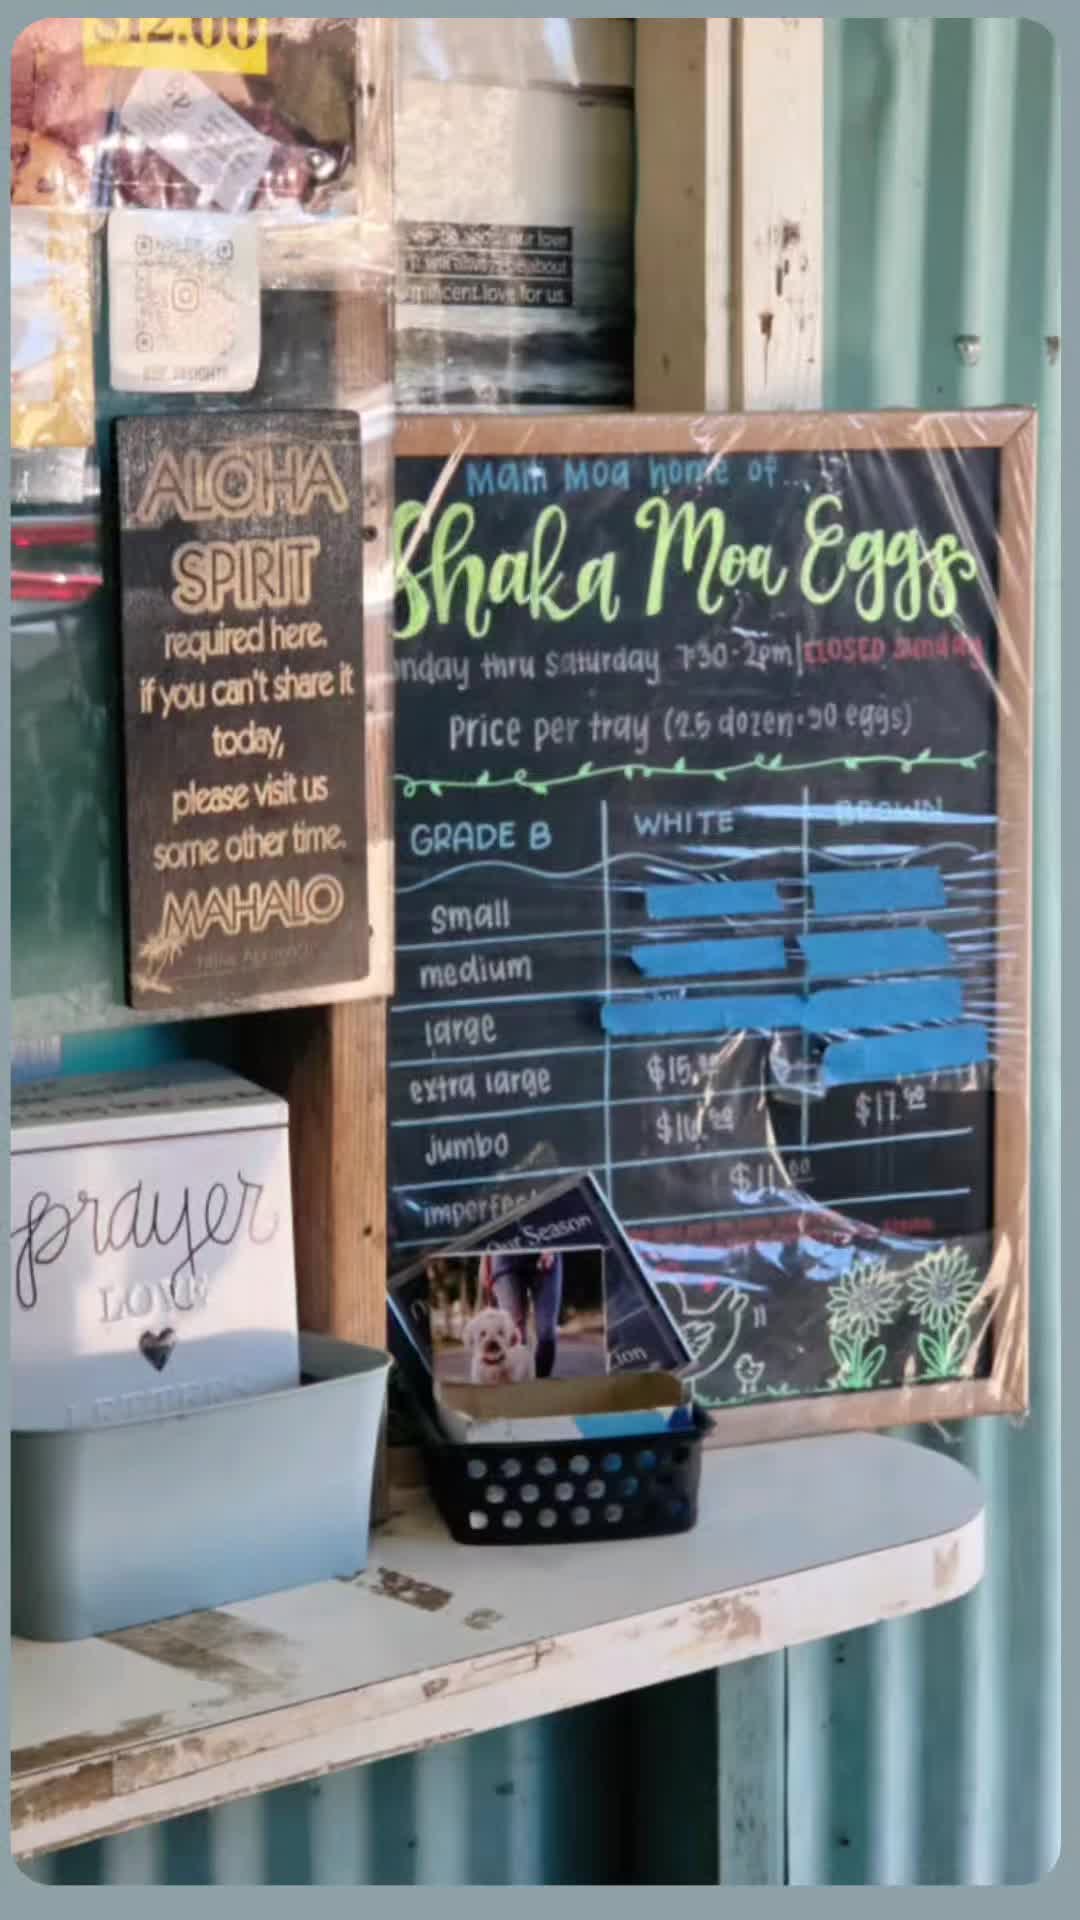 $12.00
our love
about
love for us.
ALOHA
SPIRIT
required here.
if you can't share it
today,
please visit us
some other time.
MAHALO
Mali Moa home of...
Shaka Moa Eggs
onday thru Saturday 7:30-2pm | CLOSED Sunday
Price per tray (2.5 dozen • 30 eggs)
GRADE B WHITE BROWN
small
medium
large
extra large $15.
jumbo $16.00 $17.00
imperfec $11.00
Our Season
Zion
prayer
LOVE
LETTERS